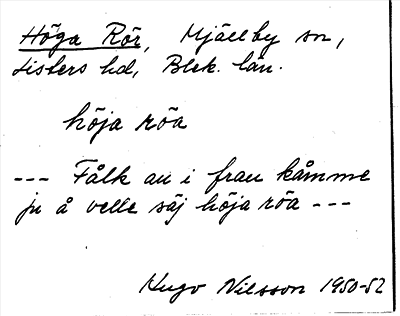 Höga Rör, Mjällby sn,
Listers hd, Blek. län.
höja röa
--- Fålk au i frau kåmme
ju å velle säj höja röa ---
Hugo Nilsson 1950-52